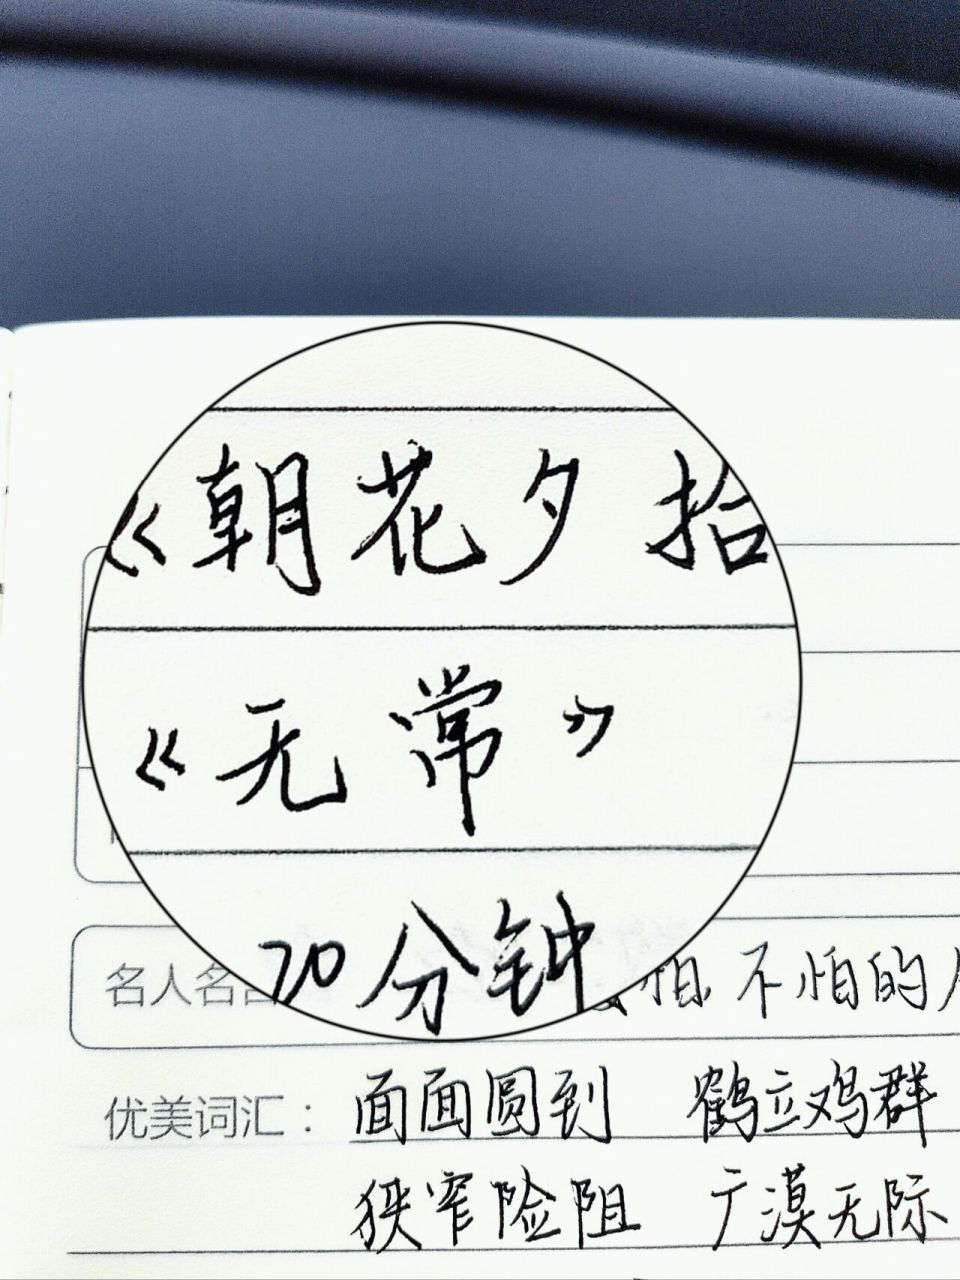 《朝花夕拾
《无常》
20分钟
名人名言 怕不怕的
优美词汇： 面面圆到 鹤立鸡群
狭窄险阻 广漠无际